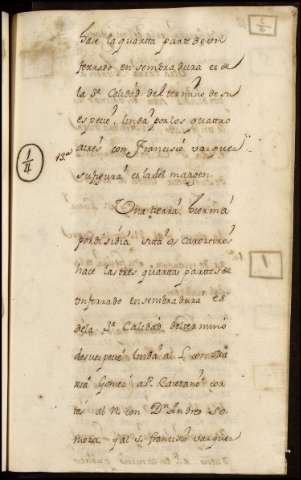 hace la quarta parte de un
ferrado en sembradura es de
la 3ª Calidad del termino de su
especie, linda por los quattro
aires con Francisco vazquez
su figura es la del margen
Una tierra hierma
por desidia sita a
hace las tres quartas partes de
un ferrado en sembradura es
de la 3ª Calidad del termino
de su especie linda al L con
Gomez a P. Caietano cor
tes al N con Dn Andres So
moza y al S. francisco vazquez